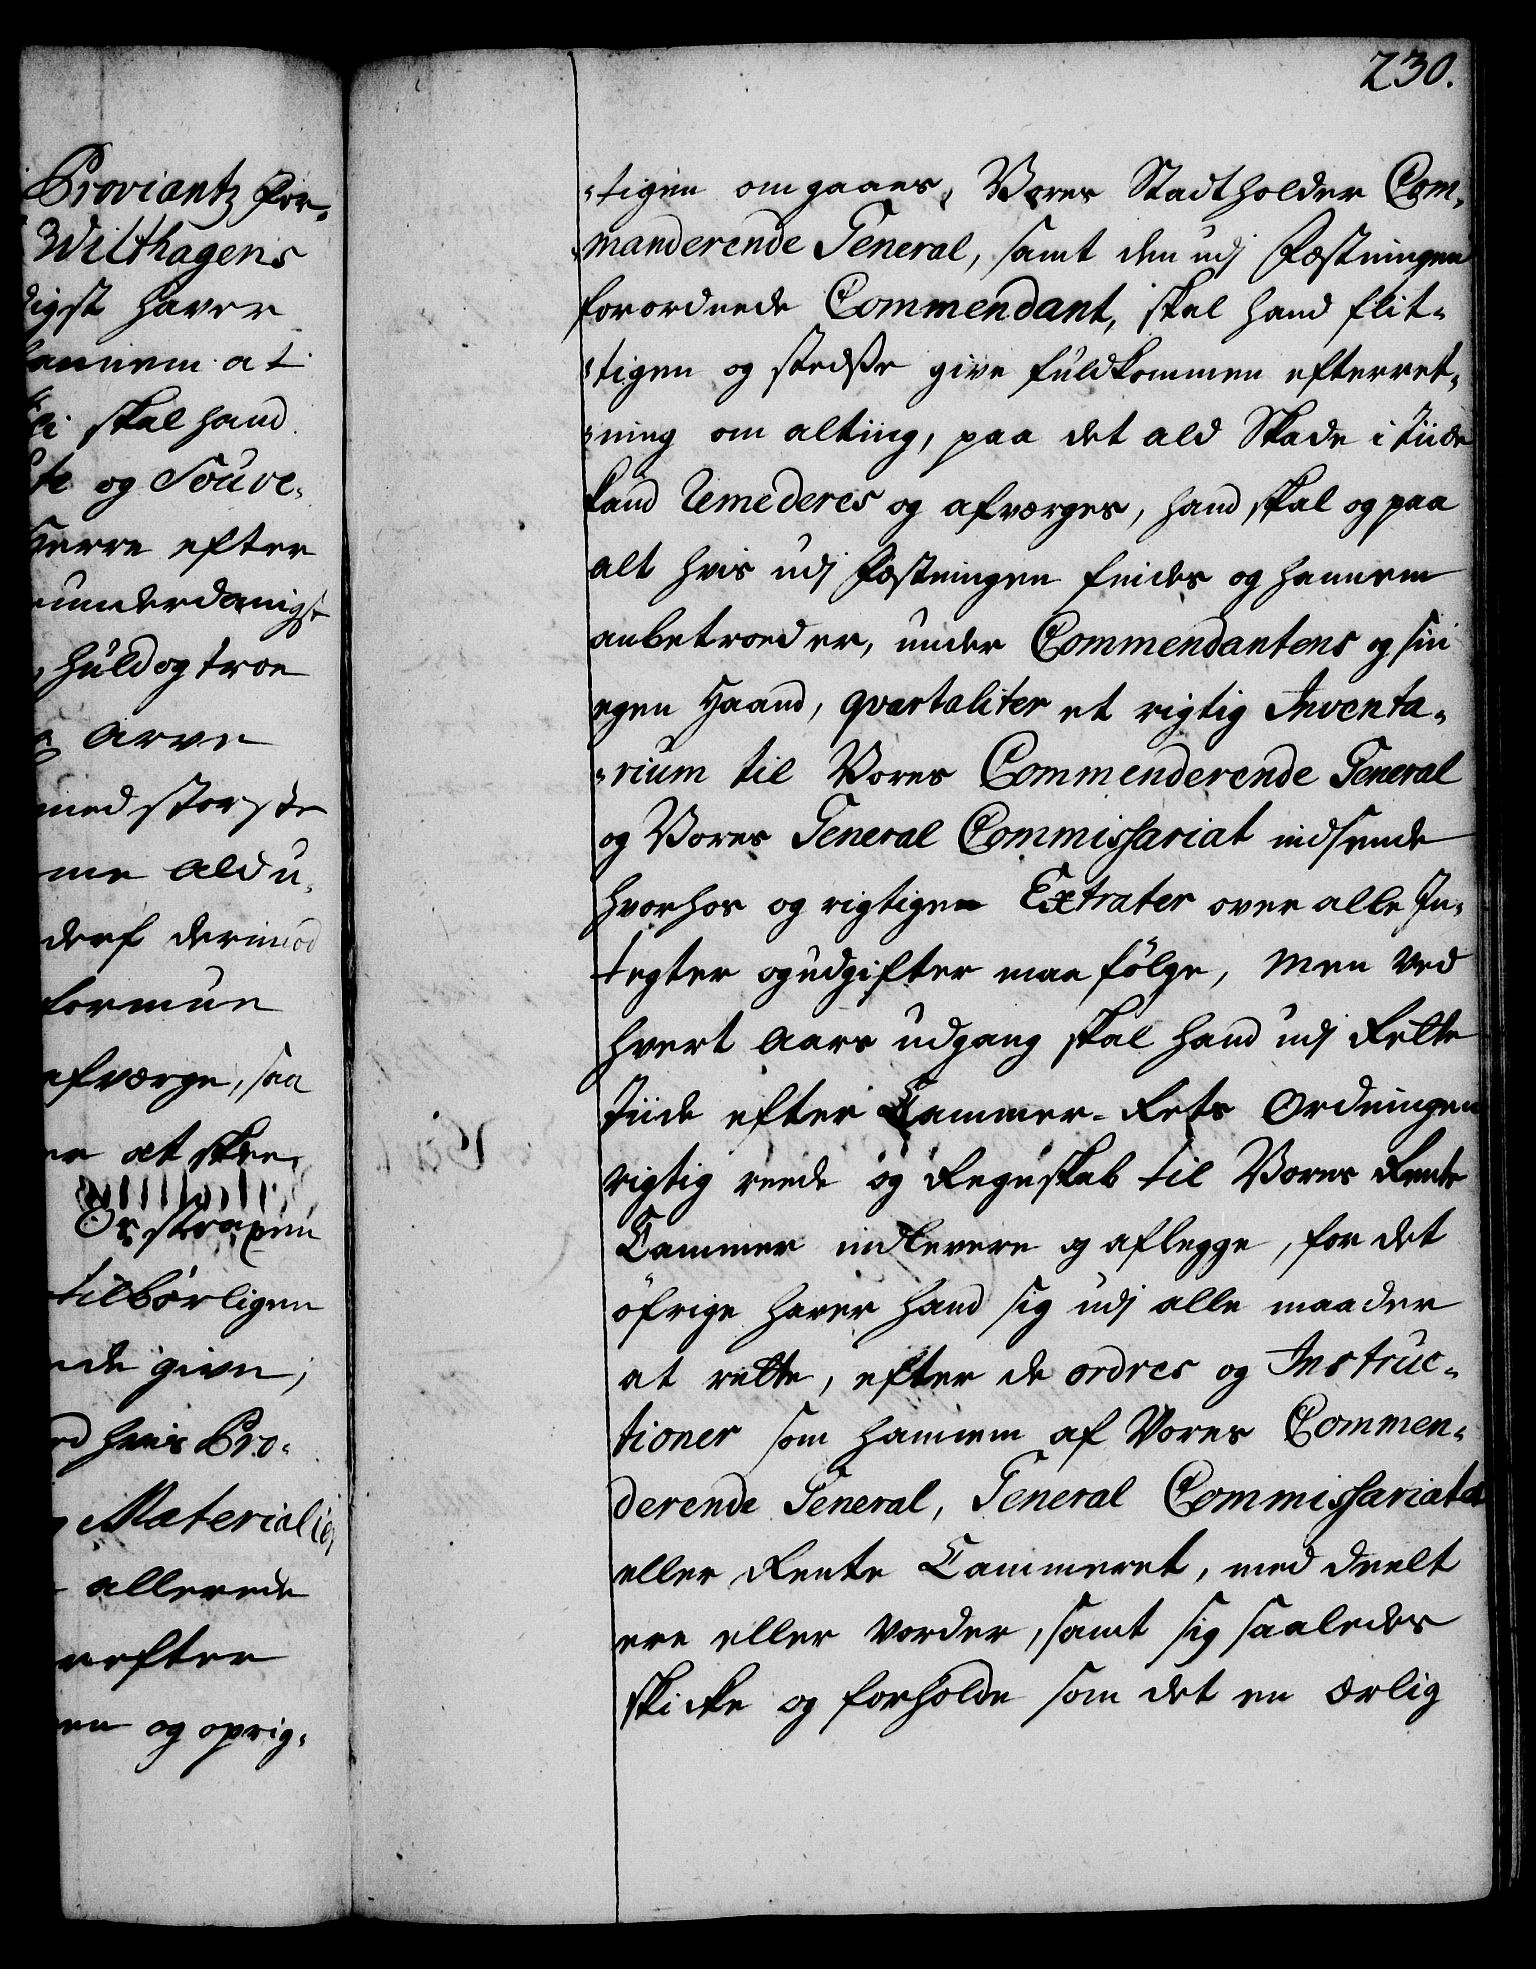 Proviantz for-
Wilthagens
digst haver
hannem at
skal hand
og Souve-
Herre efter
underdanigst
huld og troe
arve
med störste
me ald u-
derf derimod
formue
afværge, saa
er at skee,
Og strax en
tilbörligen
de given,
hvis Pro-
Materialier
allerede
efter
en og oprig-
230.
-tigen omgaaes, Vores Stadtholder Com-
manderende General, samt den udj Fæstningen
forordnede Commendant, skal hand flit-
-tigen og stedße give fuldkommen efterret-
-ning om alting, paa det ald Skade i tiide
kand Remederes og afværges, hand skal og paa
alt hvis udj Fæstningen findes og hannem
anbetroed er, under Commendantens og sin
egen Haand, qvartaliter et rigtig Inventa-
-rium til Vores Commenderende General
og Vores General Commissariat indsende
hvorhos og rigtigen Extrater over alle In-
tegter og udgifter maa fölge, Men ved
hvert Aars udgang skal hand udj Rette
Tiide efter Cammer-Rets Ordningen
rigtig reede og Regnskab til Vores Rente
Cammer indlevere og aflegge, for det
öfrige haver hand sig udj alle maader
at rette, efter de ordres og Instruc-
tioner som hannem af Vores Commen-
derende General, General Commissariatet
eller Rente Cammeret, med deelt
ere eller vorder, samt sig saaledes
skicke og forholde som det en ærlig